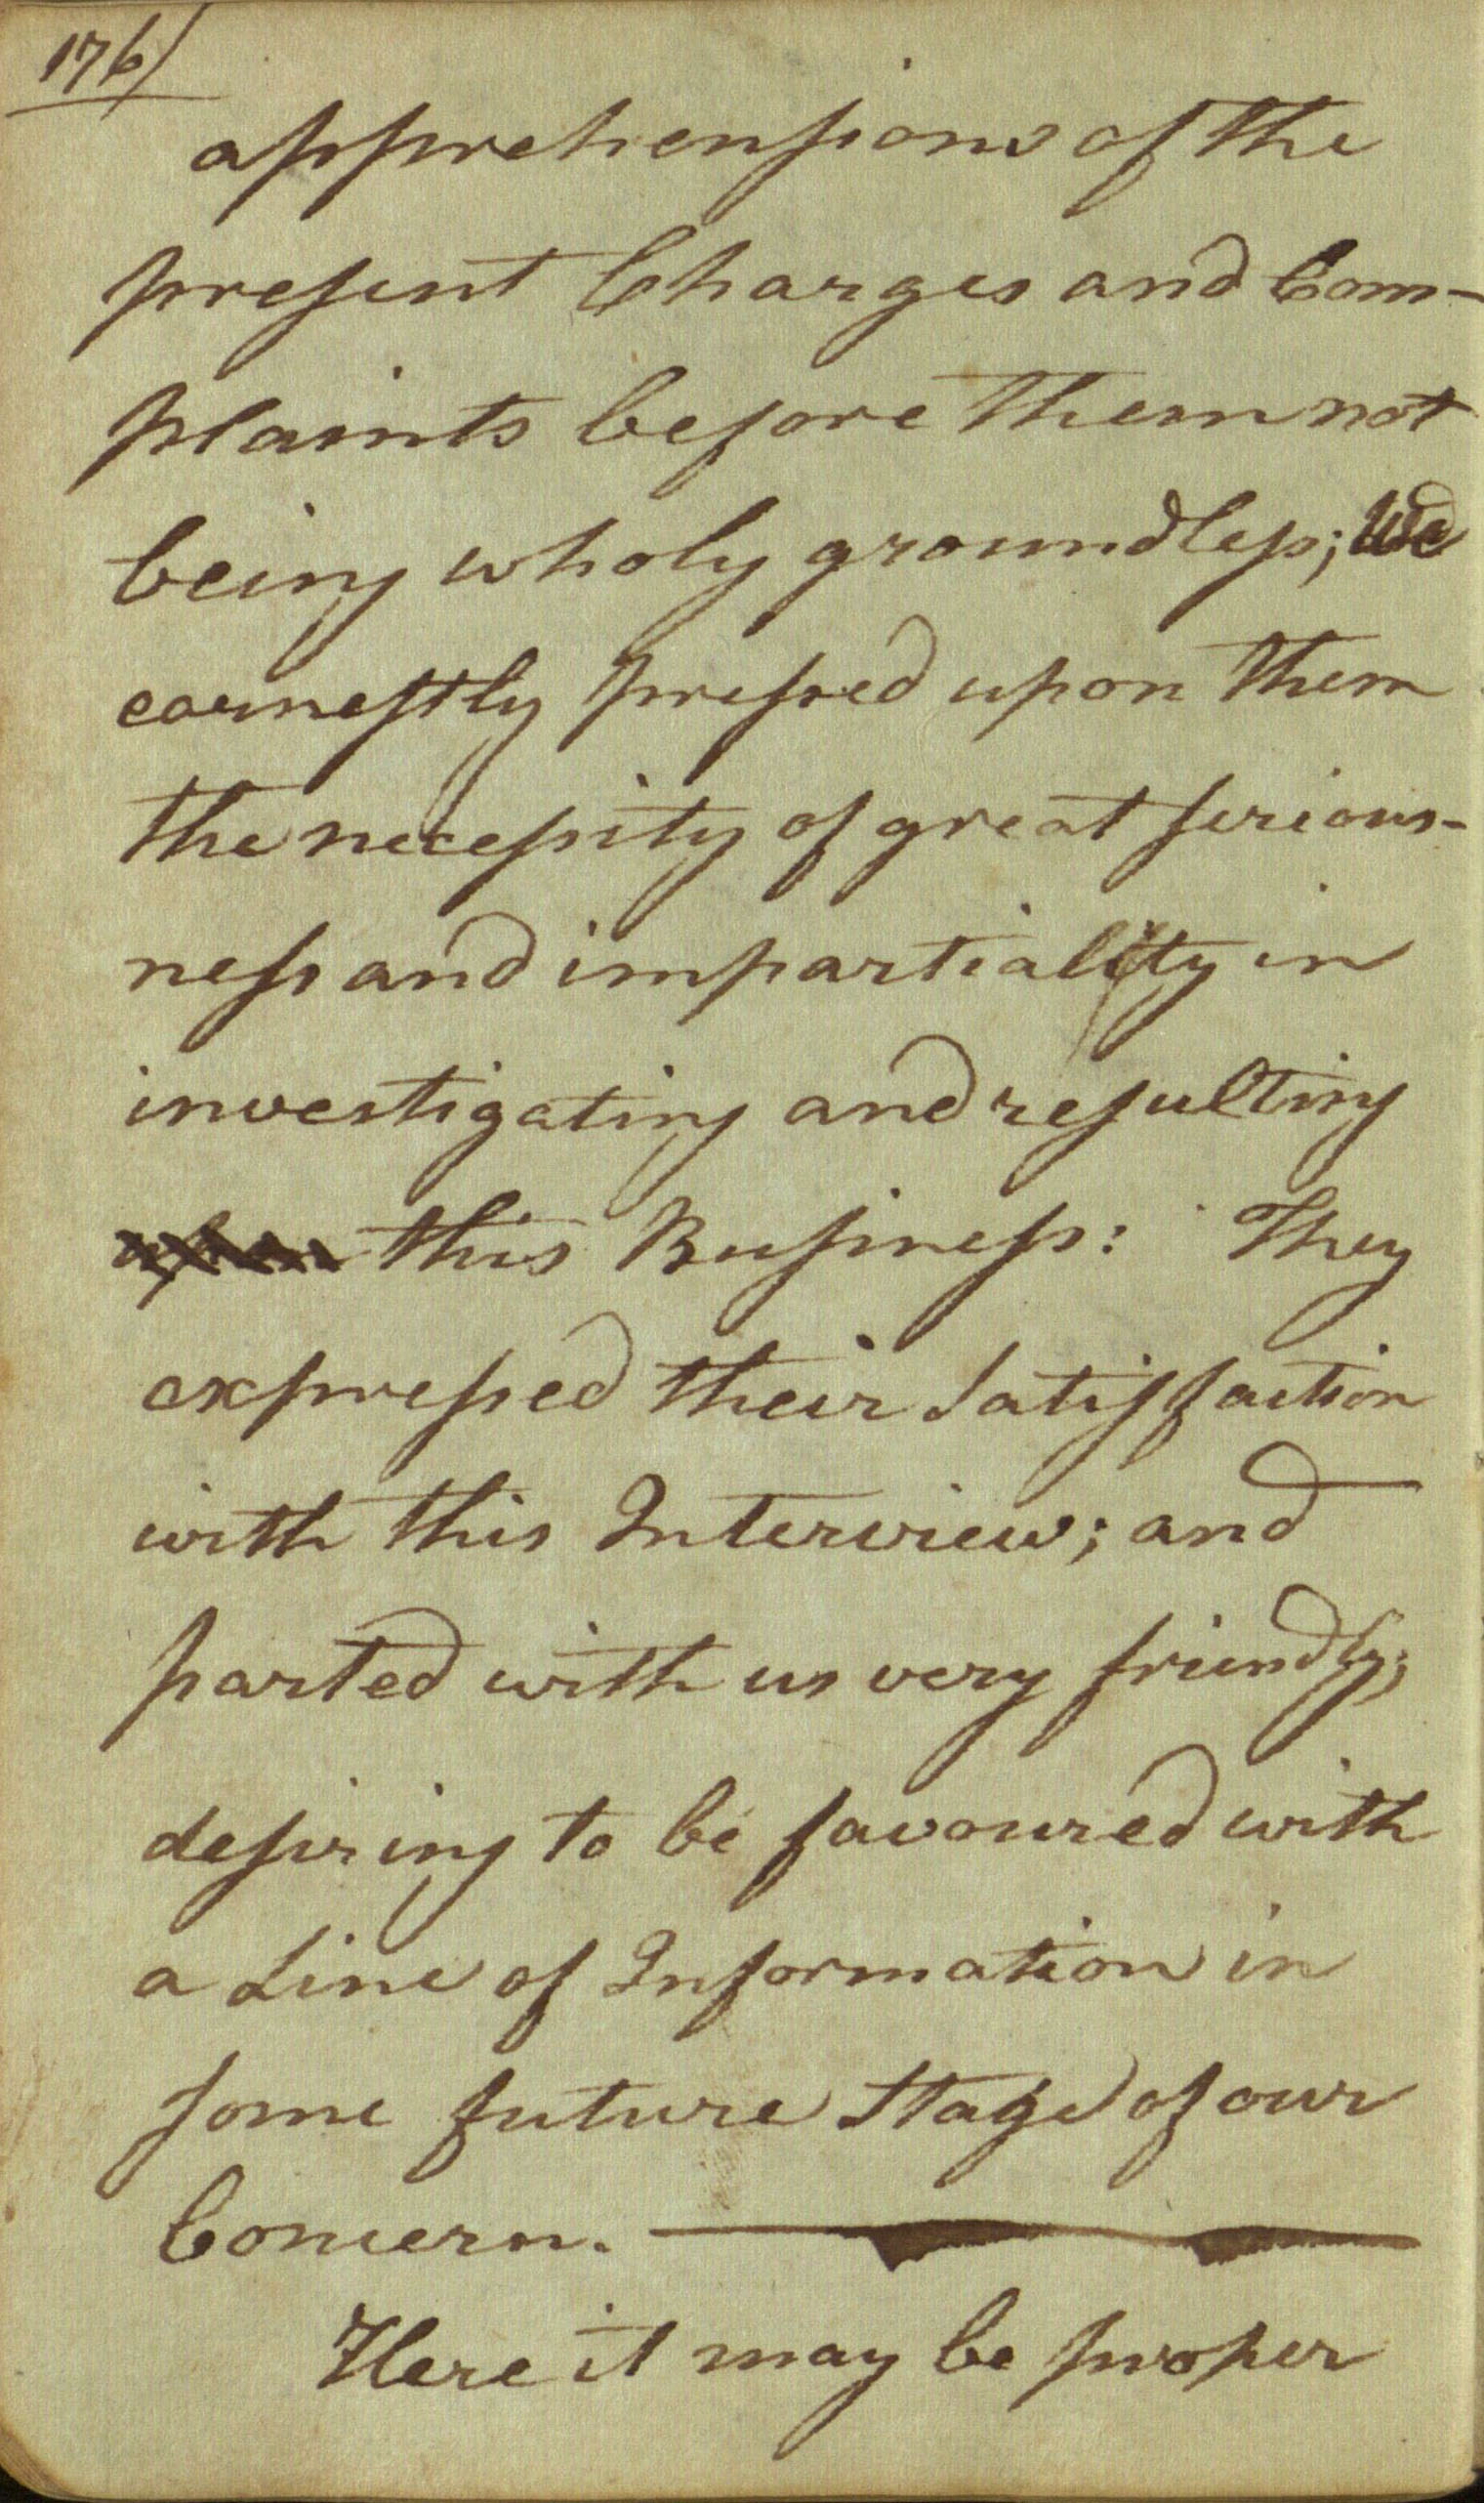 176/
apprehensions of the
present Charges and Com-
plaints before them not
being wholy groundless; we
earnestly pressed upon them
the necessity of great serious-
ness and impartiality in
investigating and resulting
this Business: They
expressed their Satisfaction
with this Interview; and
parted with us very friendly;
desiring to be favoured with
a Line of Information in
some future Stage of our
Concern.
Here it may be proper